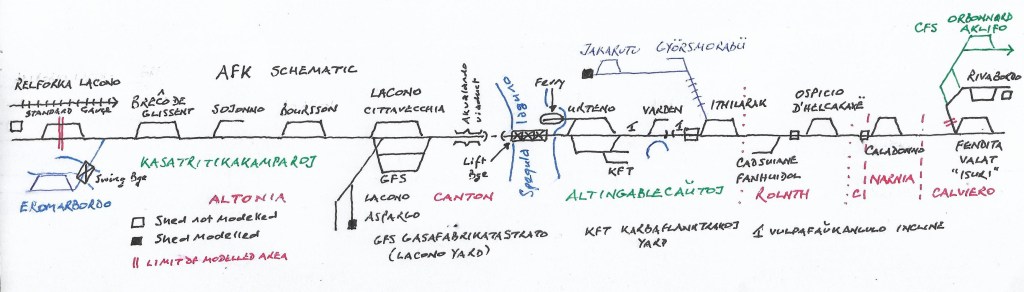 AFK SCHEMATIC
RELFORKA LACONO
STANDARD GAUGE
BRÊCO DE
GLISSENT
SOJONNO
BOURSSON
LACONO
CITTAVECCHIA
Akvalando
viaduct
Spegula
Lift
Bge
Ferry
URTENO
VARDEN
1
1
JAKARUTU GYÖRSMORABÜ
ITHILARAK
OSPICIO
D'HELCARAXË
CFS ORBONNARD
AKLIFO
RIVABORDO
Swing Bge
EROMARBORDO
KASATRITIKAKAMPAROJ
GFS
KFT
CADSUIANE
FANHUIDOL
CALADONNO
FENDITA
VALAT
"ISURI"
ALTONIA
LACONO
ASPARGO
CANTON
ALTINGABLECAŬTOJ
ROLNTH
CI
NARNIA
CALVIERO
Shed not modelled
Shed modelled
LIMIT OF MODELLED AREA
GFS GASAFABRIKATASTRATO
(LACONO YARD)
KFT KARBAFLANKTRAKOJ
YARD
1 VULPAFAŬKANGULO INCLINE